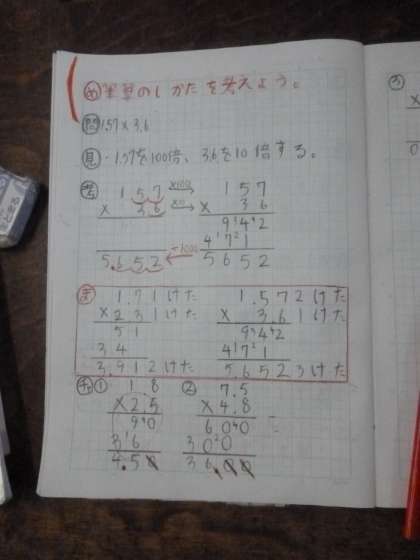 め 筆算のしかたを考えよう。
問 1.57×3.6
見 ・1.57を100倍、3.6を10倍する。
考 1.57 ×100→ 157
× 3.6 ×10→ × 36
9442
4721
5.652 ←÷1000 5652
ま 1.7 1けた 1.57 2けた
×2.3 1けた × 3.6 1けた
51 942
34 471
3.91 2けた 5.652 3けた
チャ ① 1.8 ② 7.5
×2.5 ×4.8
90 600
36 300
4.50 36.00
3